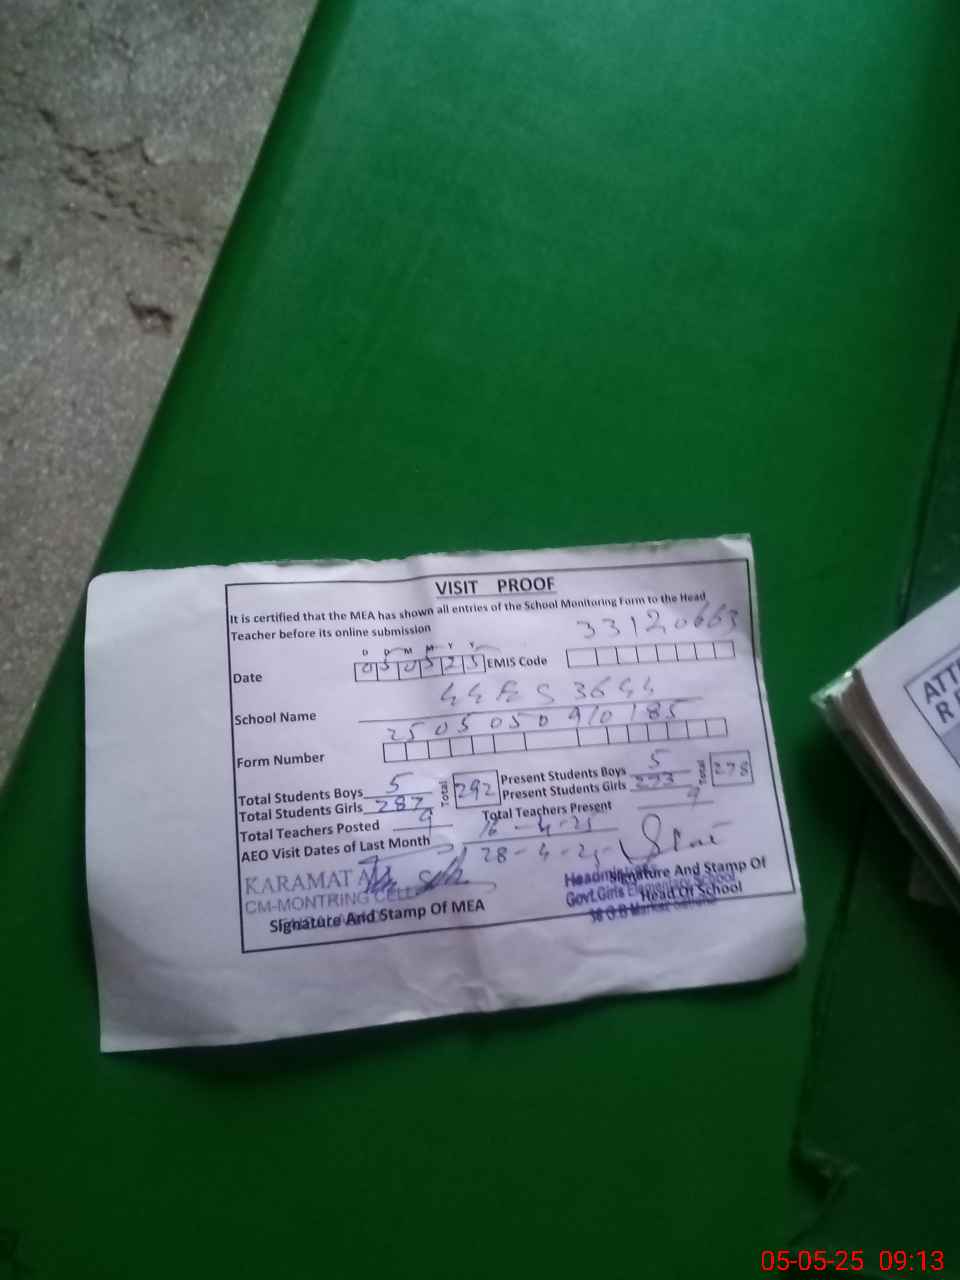 VISIT PROOF
It is certified that the MEA has shown all entries of the School Monitoring Form to the Head
Teacher before its online submission
33120663
D D M M Y Y
Date 050525 EMIS Code
School Name
2505050910185
Form Number
Total Students Boys 5 Total 292 Present Students Boys 5 Total 278
Total Students Girls 287 Present Students Girls 273
Total Teachers Posted 9 Total Teachers Present 9
AEO Visit Dates of Last Month 16-4-25
28-4-25
KARAMAT
CM-MONTRING CELL
Signature And Stamp Of MEA
Signature And Stamp Of
Head Of School
Govt.Girls Elementary School
ATT
RE
05-05-25 09:13